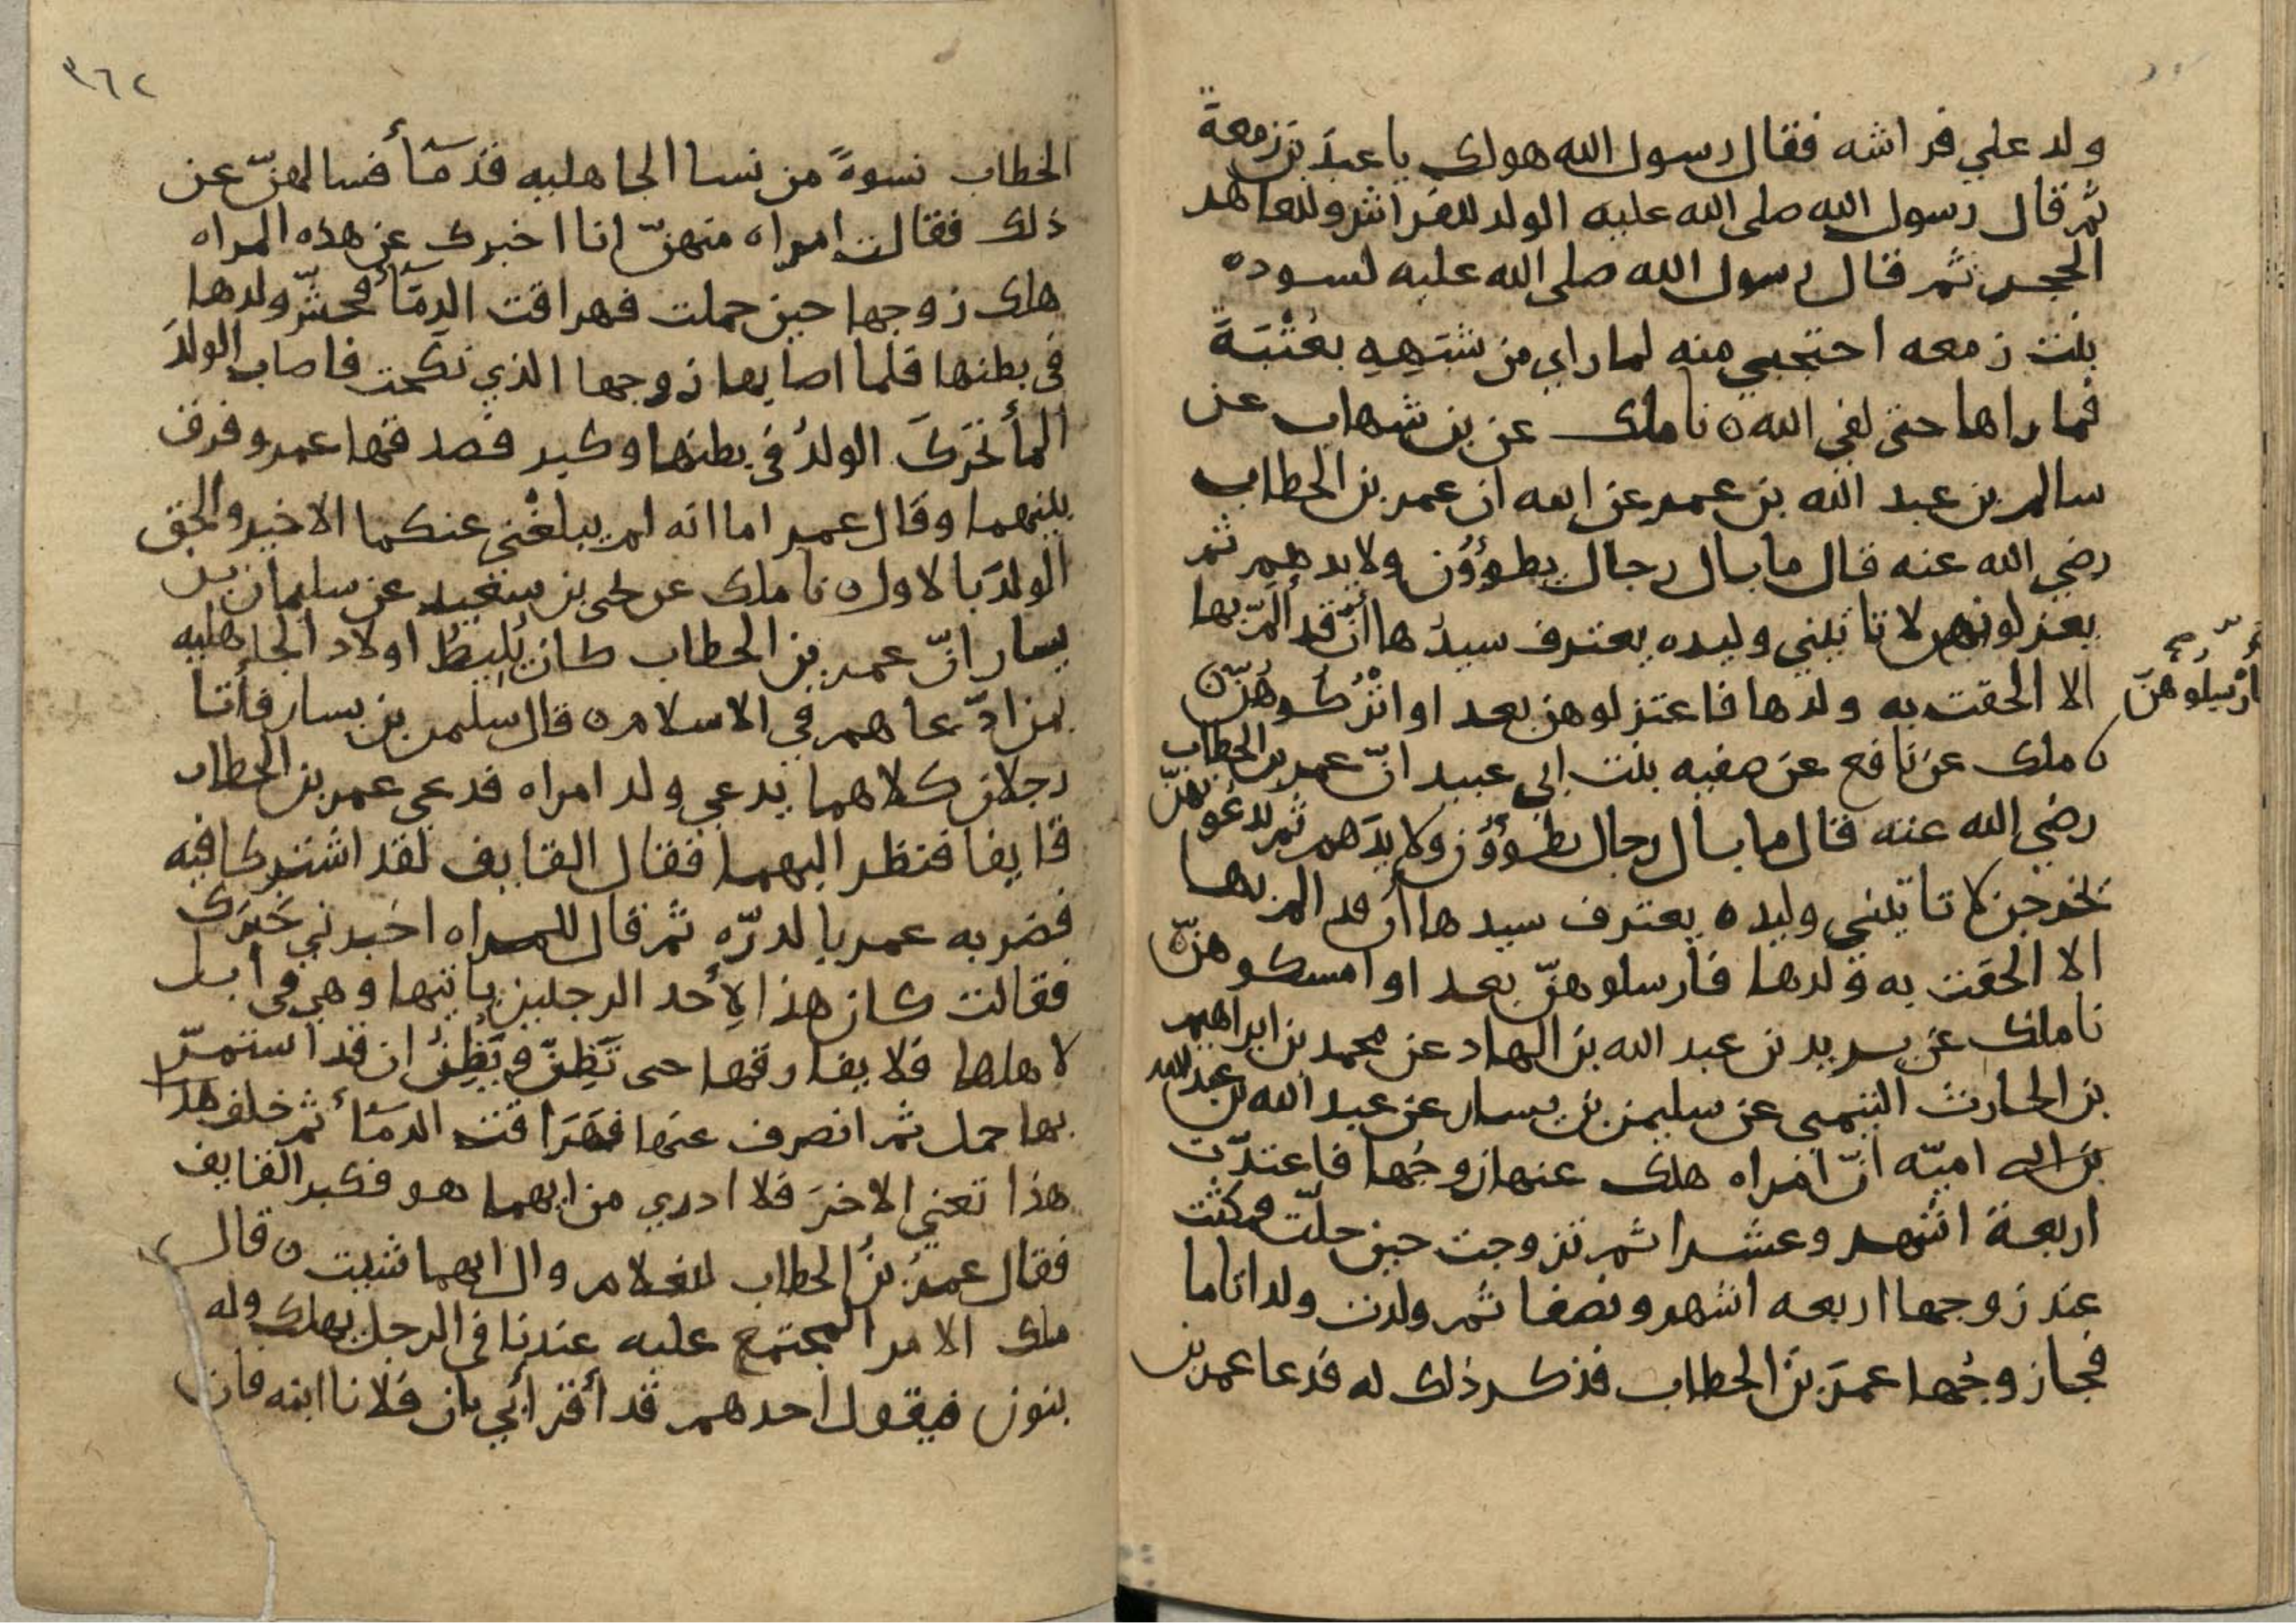 ولد علي فراشه فقال رسول الله هو لك يا عبدَ بن زمعة
ثم قال رسول الله صلى الله عليه الولد للفراش وللعاهر
الحجر ثم قال رسول الله صلى الله عليه لسوده
بنت زمعه احتجبي منه لما راي من شبَهِهِ بعُتْبَةَ
فما راها حتى لقي الله ٥ نا ملك عن بن شهاب عن
سالم بن عبد الله بن عمر عن ابيه ان عمر بن الخطاب
رضي الله عنه قال ما بال رجال يطوؤُن ولايدهم ثم
يعزلونهن لا تاتيني وليده يعترف سيدُها أنْ قد ألمّ بها
الا الحقت به ولدها فاعتزلوهن بعد او اتْرُكُوهُنّ ٥
أرْسِلوهنّ
نا ملك عن نافع عن صفيه بنت ابي عبيد انّ عمر بن الخطاب
رضي الله عنه قال ما بال رجال يطوؤُن ولايدَهم ثم يدعُونهنّ
يخرجن لا تاتيني وليده يعترف سيدها أن قد الم بها
الا الحقت به ولدها فأرسلوهنّ بعد او امسكوهنّ ٥
نا ملك عن يزيد بن عبد الله بن الهاد عن محمد بن ابراهيم
بن الحارث التيمي عن سليمن بن يسار عن عبد الله بن عبد الله
بن ابي اميّه انّ امراه هلك عنها زوجُها فاعتدّت
اربعة اشهر وعشرا ثم تزوجت حين حلّت فمكثت
عند زوجها اربعه اشهر ونصفا ثم ولدت ولدا تاما
فجا زوجُها عمرَ بنَ الخطاب فذكر ذلك له فدعا عمر بن
٣٦٢
الخطاب نسوةً من نسا الجاهليه قدمَآأ فسالهنّ عن
ذلك فقالت امراه منهنّ انا اخبرك عن هذه المراه
هلك زوجها حين حملت فهراقت الدمَآأ فحشّ ولدها
في بطنها فلما اصابها زوجها الذي نكحت فاصاب الولدَ
المأ تحرّكَ الولدُ في بطنها وكبر فصدقها عمر وفرق
بينهما وقال عمر اما انه لم يبلغْني عنكما الا خير والحق
الولدَ بالاول ٥ نا ملك عن يحيى بن سعيد عن سليمان بن
يسار انّ عمر بن الخطاب كان يُلِيطُ اولاد الجاهليه
بمن ادّعاهم في الاسلام ٥ قال سليمن بن يسار فأتا
رجلان كلاهما يدعي ولد امراه فدعي عمر بن الخطاب
قايفا فنظر اليهما فقال القايف لقد اشتركا فيه
فضربه عمر بالدرّه ثم قال للمراه اخبرني خبَرَك
فقالت كان هذا لِأحد الرجلين ياتيها وهي في ابل
لاهلها فلا يفارقها حى تَظِنّ ويَظِنُّ ان قد استمرّ
بها حمل ثم انصرف عنها فهَرَاقت الدمَآأ ثم خلف هذا
هذا تعني الاخرَ فلا ادري من ايهما هو فكبر القايف
فقال عمرُ بنُ الخطاب للغلام وال ايهما شيت ٥ قال
ملك الامر المجتمع عليه عندنا في الرجل يهلك وله
بنون فيقول احدهم قد أقرّ أبي بان فلانا ابنه فان